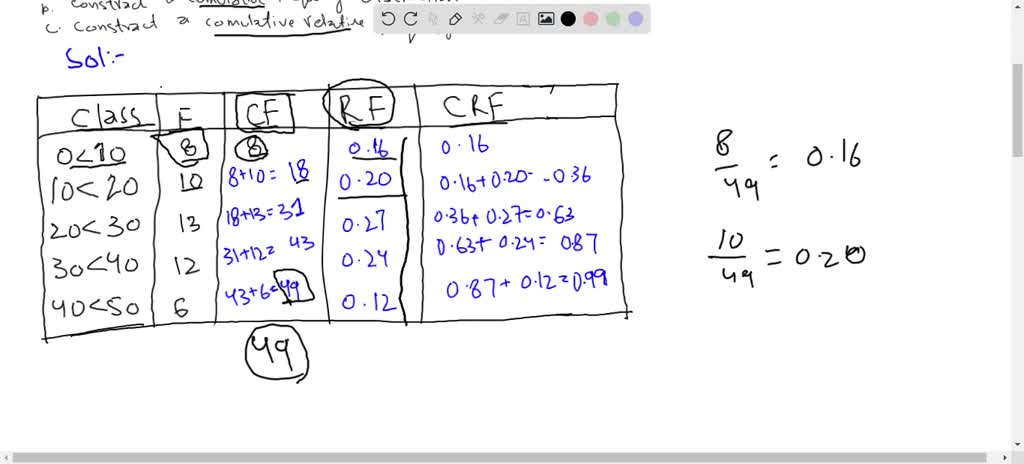 b. Construct a comulative
c. Construct a comulative relative
Sol:-
Class F CF RF CRF
0<10 8 8 0.16 0.16
10<20 10 8+10=18 0.20 0.16+0.20--0.36
20<30 13 18+13=31 0.27 0.36+0.27=0.63
30<40 12 31+12=43 0.24 0.63+0.24=0.87
40<50 6 43+6=49 0.12 0.87+0.12=0.99
49
8/49 = 0.16
10/49 = 0.20